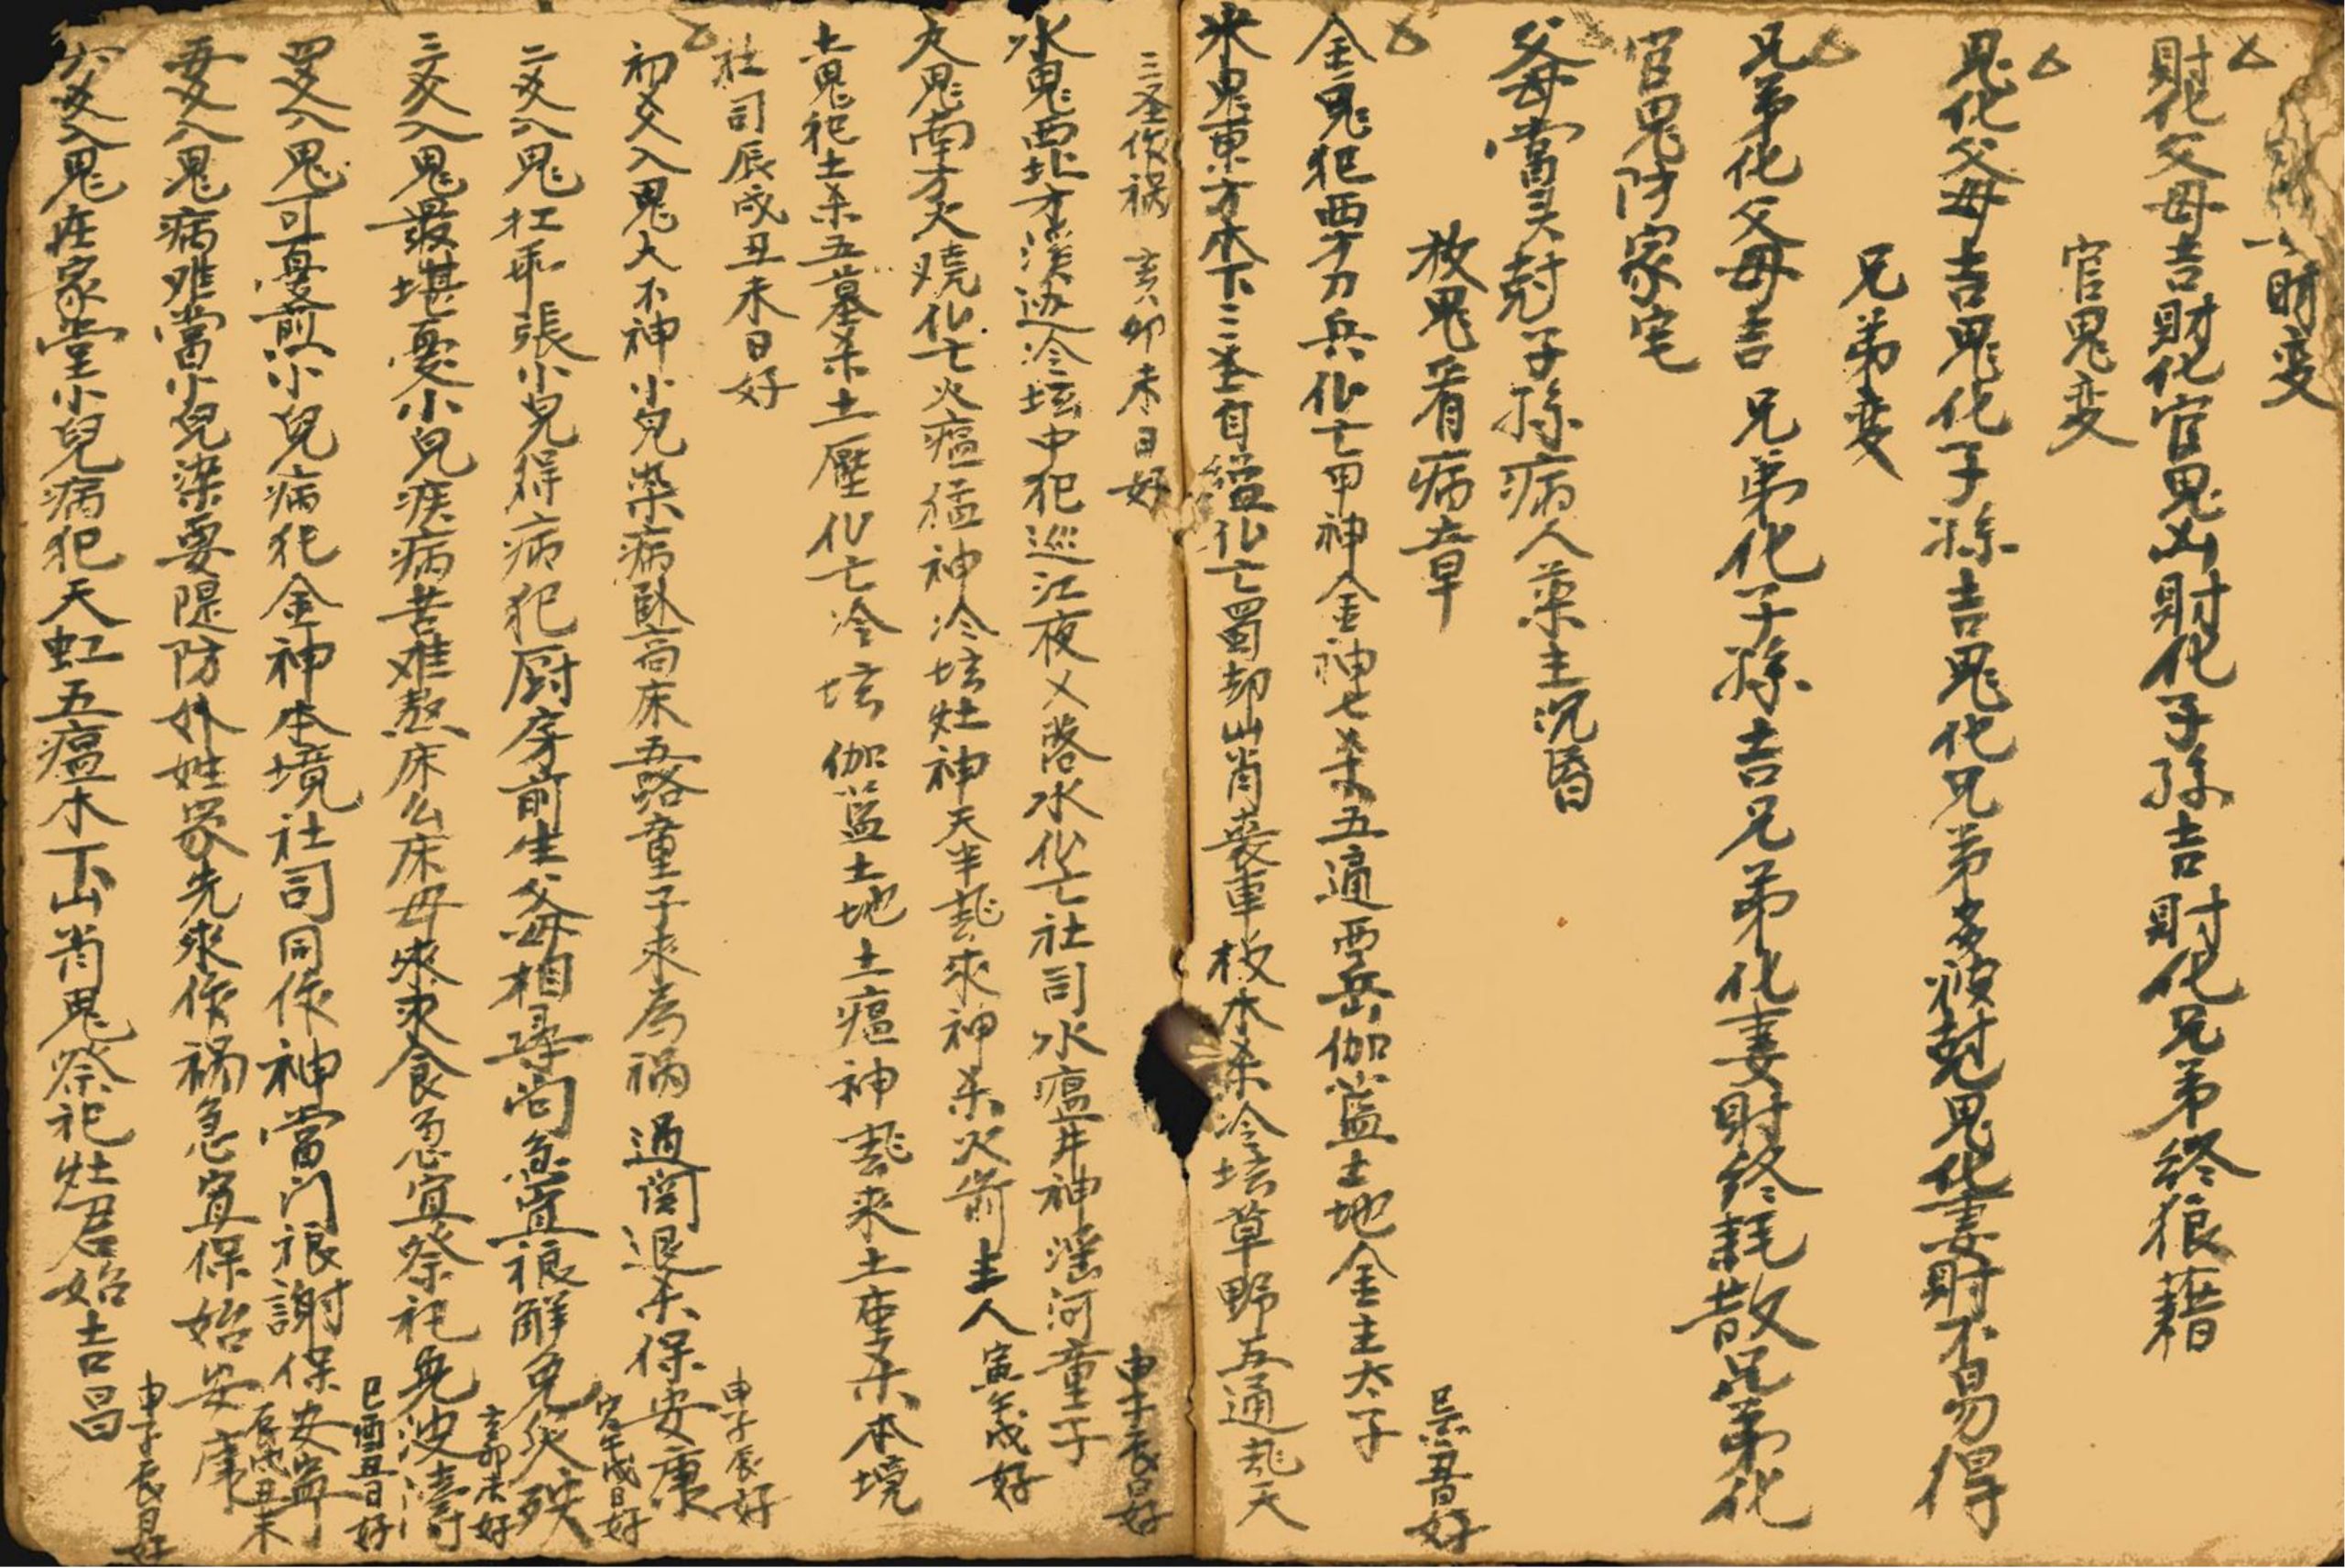 財変
財化父母吉財化官鬼凶財化子孫吉財化兄弟終狼藉
官鬼変
鬼化父母吉鬼化子孫吉鬼化兄弟多被尅鬼化妻財不易得
兄弟変
兄弟化父母吉兄弟化子孫吉兄弟化妻財終耗散兄弟化
官鬼防家宅
父母當頭尅子孫病人藥主沉昏
放鬼看病章
金鬼犯西方刀兵仏亡甲神金神七杀五通西岳伽藍土地金主太子
日好
木鬼東方木下三圣自縊仏亡蜀却山肖喪車板木杀冷坛草野五通 天
三圣作祸 亥卯未日好
水鬼西北方溪边冷坛中犯巡江夜乂落水仏亡社司水瘟井神 河童子
申子辰日好
火鬼南方火燒仏亡火瘟猛神冷坛灶神天半 來神杀火前主人
寅午戌好
土鬼犯土杀五墓杀土壓仏亡冷坛伽藍土地土瘟神 來土 杀本境
社司辰戌丑未日好
初爻入鬼大不神小兒染病臥高床五路童子來為祸過関退杀保安康
申子辰好
二爻入鬼扛乖張小兒得病犯厨房前生父母相尋问急宜禳解免災殃
寅午戌日好
三爻入鬼最堪憂小兒疾病苦难熬床公床母來求食急宜祭祀免波濤
亥卯未好
四爻入鬼可憂煎小兒病犯金神本境社司同作神當门禳謝保安寧
巳酉丑日好
五爻入鬼病难當小兒染要隄防外姓家先來作祸急宜保始安康
辰戌丑未
六爻入鬼在家堂小兒病犯天虹五瘟木下山肖鬼祭祀灶君始吉昌
申子辰日好